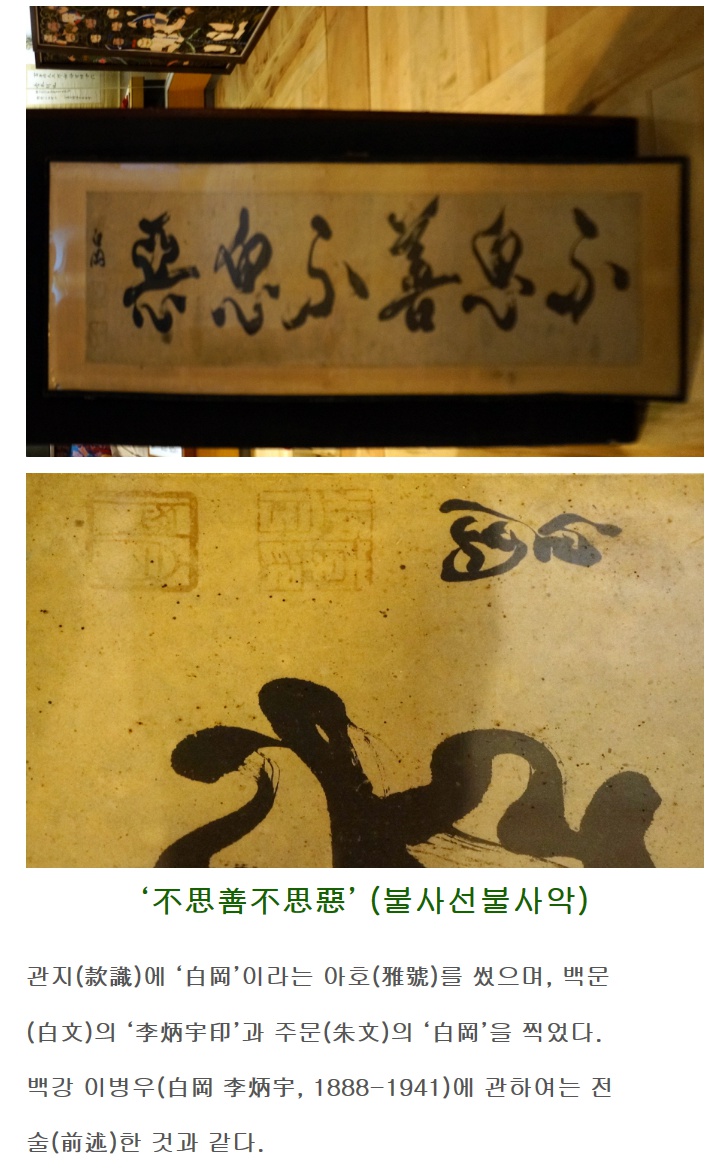 不思善不思惡
白岡
白岡
‘不思善不思惡’ (불사선불사악)
관지(款識)에 ‘白岡’이라는 아호(雅號)를 썼으며, 백문
(白文)의 ‘李炳宇印’과 주문(朱文)의 ‘白岡’을 찍었다.
백강 이병우(白岡 李炳宇, 1888-1941)에 관하여는 전
술(前述)한 것과 같다.